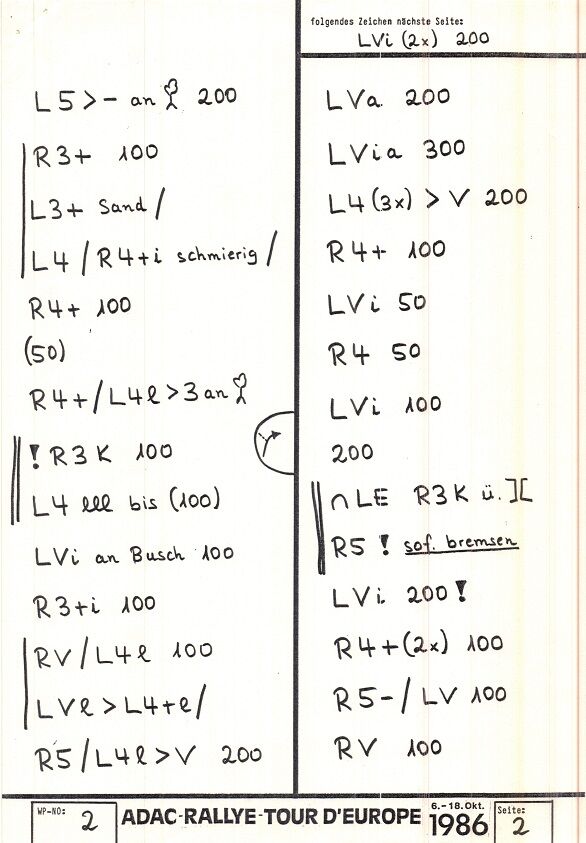 folgendes Zeichen nächste Seite:
LVi (2x) 200
L5 > - an 200
R3+ 100
L3+ Sand /
L4 / R4+i schmierig /
R4+ 100
(50)
R4+ / L4l > 3 an
! R3 K 100
L4 lll bis (100)
LVi an Busch 100
R3+i 100
RV / L4l 100
LVl > L4+l /
R5 / L4l > V 200
LVa 200
LVia 300
L4 (3x) > V 200
R4+ 100
LVi 50
R4 50
LVi 100
200
∩ LE R3 K ü. ][
R5 ! sof. bremsen
LVi 200 !
R4+ (2x) 100
R5- / LV 100
RV 100
WP-NO: 2
ADAC-RALLYE-TOUR D'EUROPE
6.-18. Okt.
1986
Seite: 2